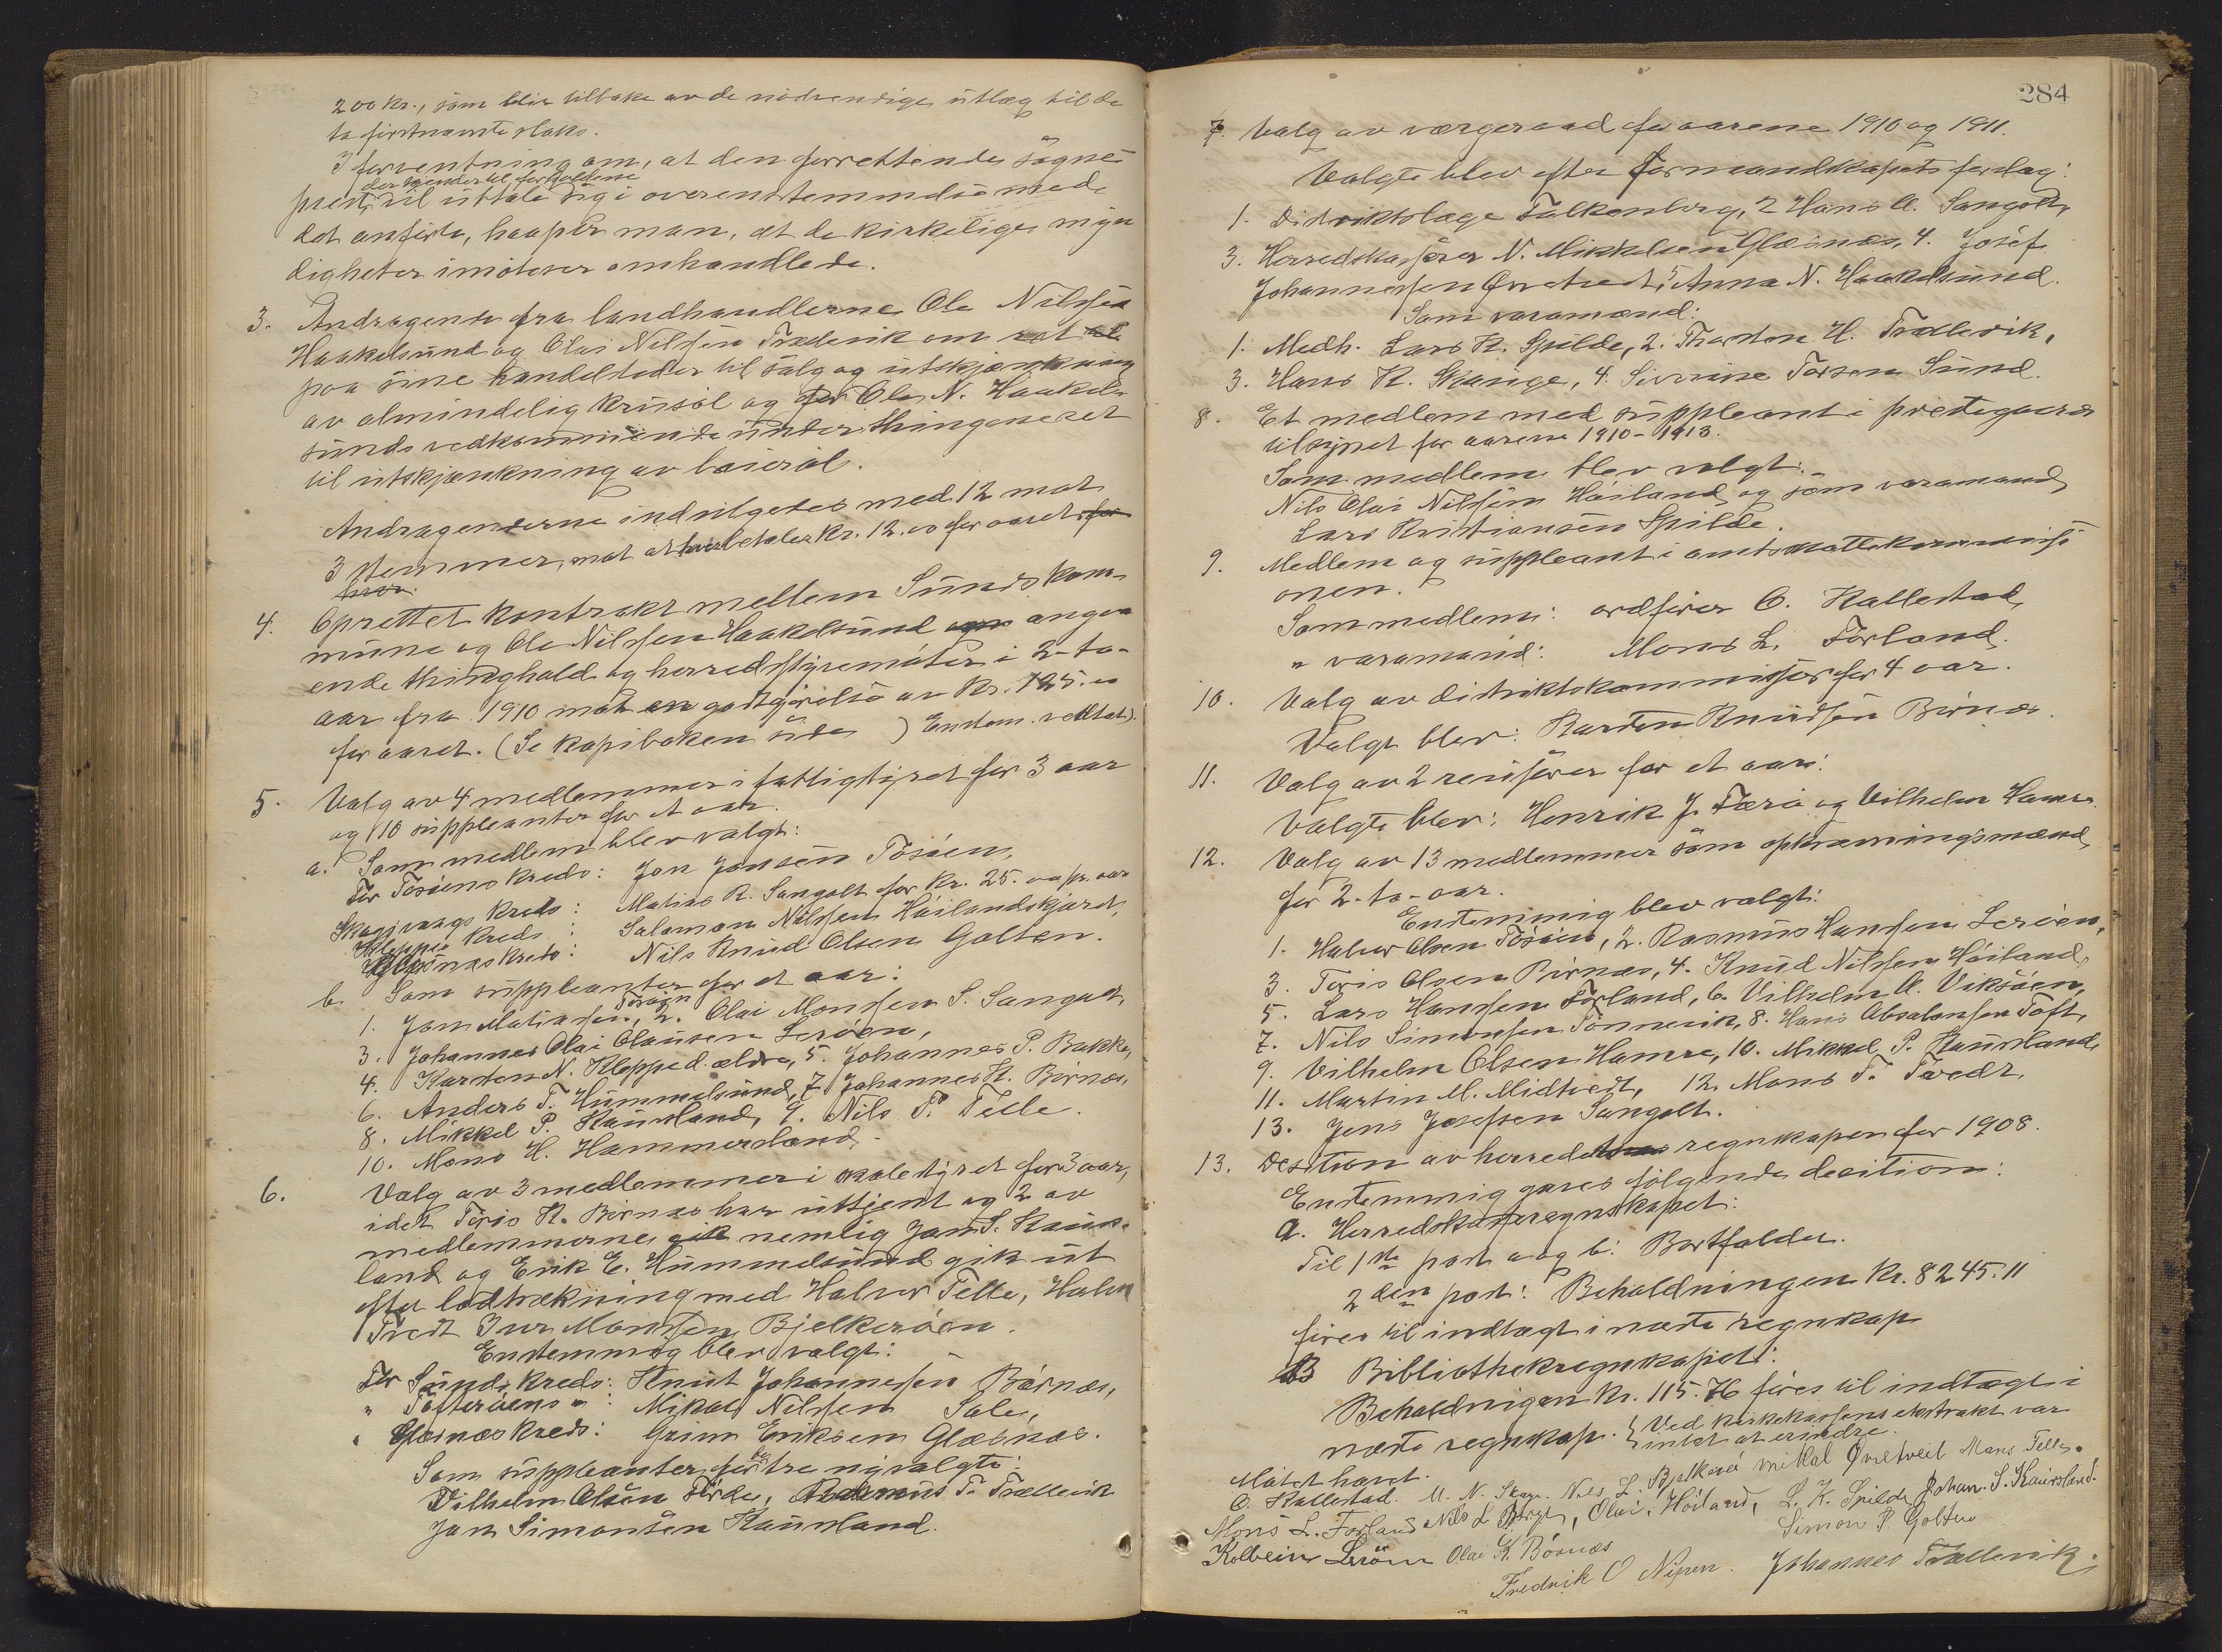 200 kr., som blir tilbake av de nødvendige utlæg til de
to førstnævnte slags.
I forventning om, at den forrettende sogne-
der kjender til forholdene
prest vil uttale sig i overensstemmelse med
det anførte, haaper man, at de kirkelige myn
digheter imøteser omhandlede.
3. Andragende fra landhandlerne Ole Nilssen
Haakelsund og Olai Nilssen Trællevik om ret
paa sine handelssteder til salg og utskjænkning
av almindelig krusøl og for Ole N. Haakel-
sunds vedkommende under thingene ret
til utskjænkning av baierøl.
Andragenderne indvilgedes med 12 mot
3 stemmer, mot at hver betaler kr. 12.00 for aaret for
hver.
4. Oprettet kontrakt mellem Sunds kom-
mune og Ole Nilssen Haakelsund angaa
ende thinghold og herredsstyremøter i 2-to-
aar fra 1910 mot en godtgjørelse av kr. 125.00
for aaret. (Se kopiboken side ) Enstem. vedtat).
5. Valg av 4 medlemmer i fattigstyret for 3 aar
og 10 suppleanter for et aar.
a. Som medlem blev valgt:
For Tøsøens kreds: Jon Jonsen Tösöen,
Skogsvaags kreds: Matias R. Sangolt for kr. 25.00 pr. aar
Kleppe kreds: Salomon Nilssen Höilandskjæret,
Glesnæs kreds: Nils Knud Olsen Golten.
b. Som suppleanter for et aar:
1. Jon Matiassen Tösöen, 2. Olai Monssen S. Sangolt,
3. Johannes Olai Olausen Leröen,
4. Karsten N. Kleppe d. ældre, 5. Johannes P. Bakke,
6. Anders T. Hummelsund, 7. Johannes K. Bornæs,
8. Mikkel P. Kausland, 9. Nils T. Telle.
10. Mons H. Hammersland.
6. Valg av 3 medlemmer i skolestyret for 3 aar,
idet Töris K. Börnæs har uttjent og 2 av
medlemmerne gik nemlig Jon S. Kaus-
land og Erik E. Hummelsund gik ut
efter lodtrækning med Halvor Telle, Halvor
Tvedt Iver Monssen Bjelkeröen.
Enstemmig blev valgt:
For Sunds kreds: Knut Johannessen Börnæs,
" Tofteröens ": Mikal Nilssen Sale,
" Glesnæs kreds: Grim Eriksen Glæsnæs.
Som suppleanter for de tre nyvalgte:
Vilhelm Olsen Förde, Rasmus T. Trællevik
Jon Simonsen Kausland.
284
7. Valg av værgeraad for aarene 1910 og 1911.
Valgte blev efter formandskapets forslag:
1. Distriktslæge Falkenberg, 2 Hans A. Sangolt,
3. Herredskasserer N. Mikkelsen Glæsnæs, 4. Josef
Johannessen Øvretvedt, 5 Anna N. Haakelsund.
Som varamænd:
1. Medh. Lars K. Spilde, 2. Thorsten H. Trællevik,
3. Hans K. Skauge, 4. Severine Torsen Sund.
8. Et medlem med suppleant i prestegaards
tilsynet for aarene 1910-1913.
Som medlem blev valgt:
Nils Olai Nilssen Höiland og som varamand
Lars Kristiansen Spilde.
9. Medlem og suppleant i amtsskattekommissi
onen.
Som medlem: ordfører O. Kallestad,
" varamand: Mons L. Forland.
10. Valg av distriktskommissær for 4 aar.
Valgt blev: Karsten Knudsen Börnæs.
11. Valg av 2 revisorer for et aar:
Valgte blev: Henrik J. Færö og Vilhelm Hamre.
12. Valg av 13 medlemmer som opkrævningsmænd
for 2-to-aar.
Enstemmig blev valgt:
1. Halvor Olsen Tösöen, 2. Rasmus Hansen Leröen,
3. Töris Olsen Börnæs, 4. Knud Nilssen Höiland,
5. Lars Hanssen Forland, 6. Vilhelm A. Viksöen,
7. Nils Simonssen Tönnevik, 8. Hans Absalonsen Toft,
9. Vilhelm Olsen Hamre, 10. Mikkel P. Kausland,
11. Martin M. Midtvedt, 12. Mons T. Tvedt,
13. Jens Josefsen Sangolt.
13. Desition av herreds regnskapen for 1908.
Enstemmig gaves følgende desition:
a. Herredskasseregnskapet:
Til 1ste post a og b: Bortfalder.
2den post: Beholdningen kr. 8245.11
føres til indtægt i næste regnskap
B Bibliothekregnskapet:
Beholdnigen kr. 115.76 føres til indtægt i
næste regnskap. { Ved kirkekassens ekstrakt var
intet at erindre.
Møtet hævet.
O. Kallestad. M. N. Skoge. Nils L. Bjelkeröi Mikal Øvretveit Mons Telle.
Mons L. Forland Nils L Berge, Olai Höiland, L. K. Spilde Johan. S. Kausland.
Kolbein Leröen Olai K. Börnæs Simon P. Golten
Fredrik O Nipen. Johannes Trællevik.